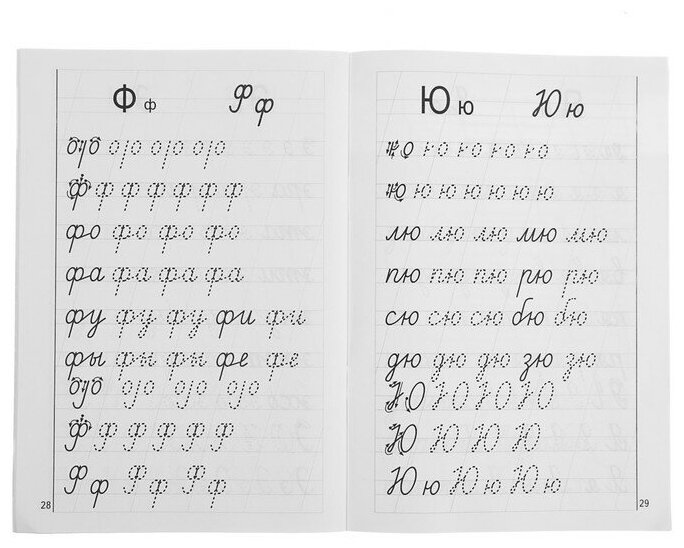 Ф ф Ф ф
ф ф ф ф ф ф ф
фо фо фо фо
фа фа фа фа
фу фу фу фи фи
фы фы фы фе фе
Ф Ф Ф Ф Ф Ф
Ф ф Ф ф Ф ф
28
Ю ю Ю ю
ю ю ю ю ю ю ю
лю лю лю мю мю
пю пю пю рю рю
сю сю сю бю бю
дю дю дю зю зю
Ю Ю Ю Ю
Ю ю Ю ю Ю ю
29